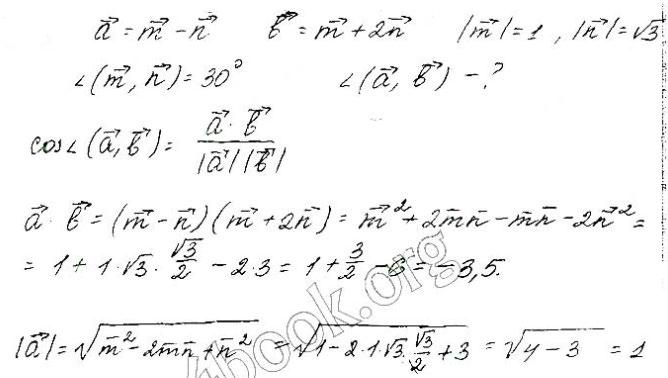 a⃗ = m⃗ − n⃗   b⃗ = m⃗ + 2n⃗   |m⃗| = 1 , |n⃗| = √3
∠(m⃗, n⃗) = 30°   ∠(a⃗, b⃗) − ?
cos∠(a⃗, b⃗) = (a⃗ · b⃗)/(|a⃗| |b⃗|)
a⃗ · b⃗ = (m⃗ − n⃗)(m⃗ + 2n⃗) = m⃗² + 2m̄n̄ − m̄n̄ − 2n⃗² =
= 1 + 1·√3 · √3/2 − 2·3 = 1 + 3/2 − 6 = −3,5.
|a⃗| = √(m̄² − 2m̄n̄ + n̄²) = √(1 − 2·1·√3·√3/2 + 3) = √(4 − 3) = 1
4book.org